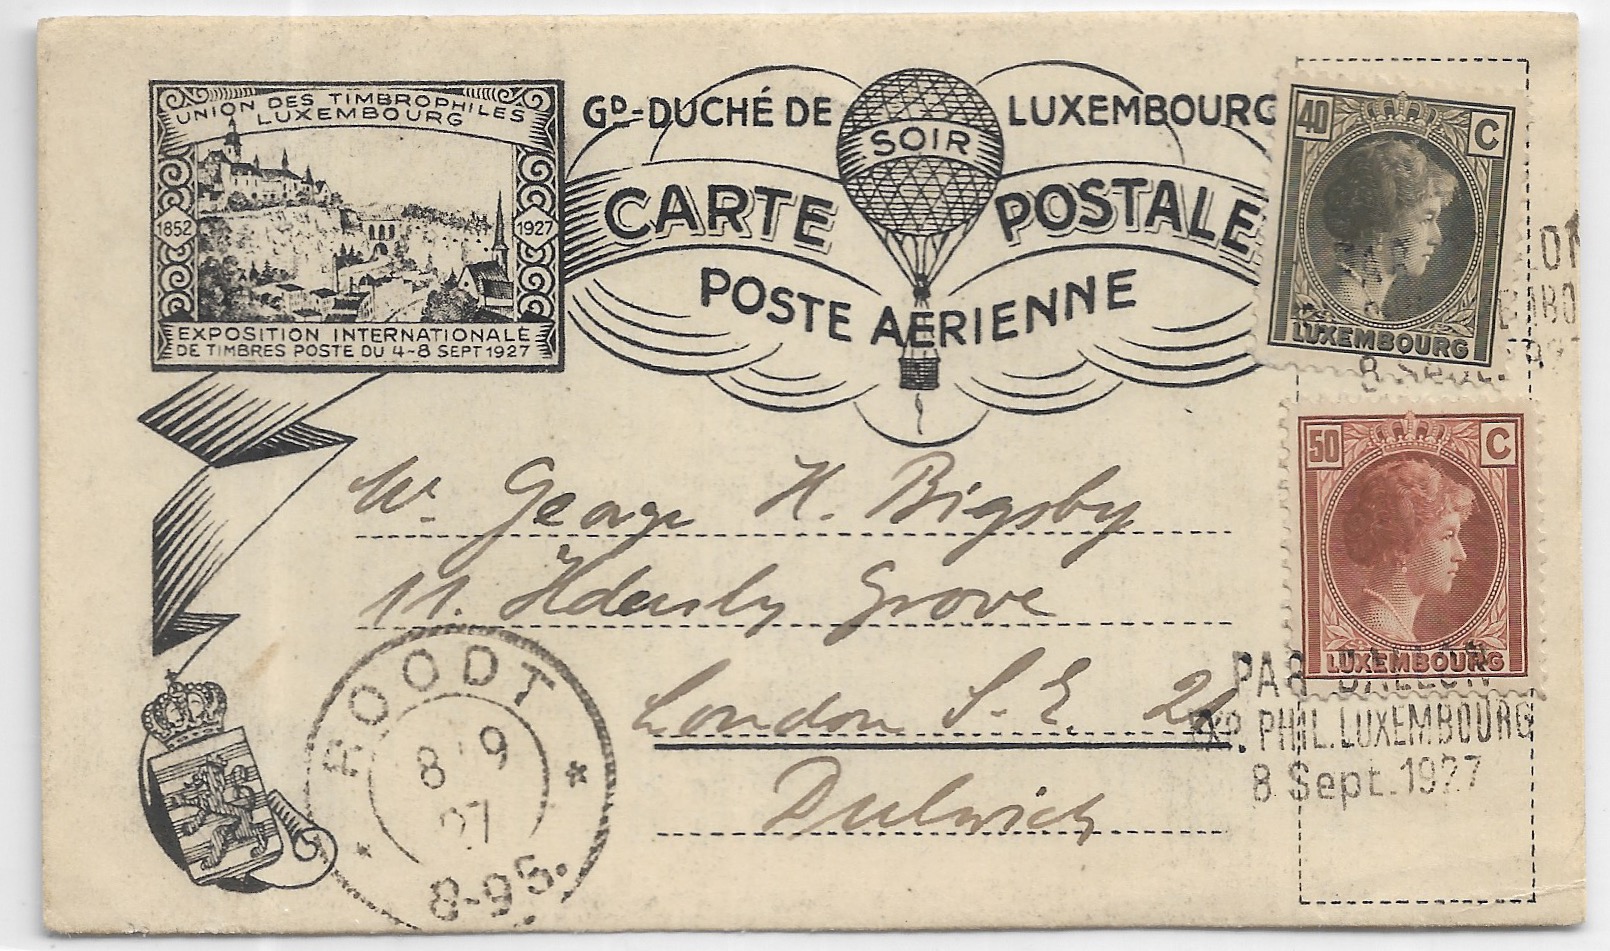 UNION DES TIMBROPHILES
LUXEMBOURG
1852
1927
EXPOSITION INTERNATIONALE
DE TIMBRES POSTE DU 4-8 SEPT 1927
GD-DUCHÉ DE LUXEMBOURG
SOIR
CARTE POSTALE
POSTE AERIENNE
40 C
LUXEMBOURG
50 C
LUXEMBOURG
Mr. George H. Bigsby
11. Grove
London S.E. 21
Dulwich
PAR BALLON
EXP. PHIL. LUXEMBOURG
8 Sept. 1927
ROODT
8 9
27
8-9S.